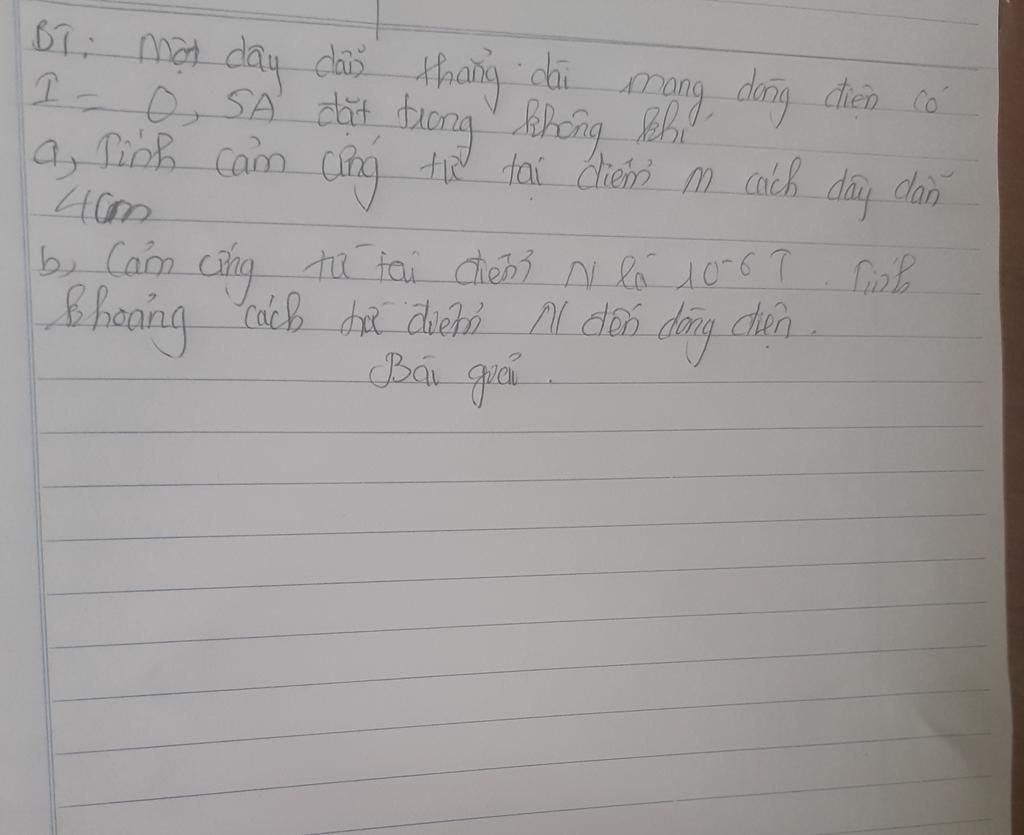 BT: Một dây dẫn thẳng dài mang dòng điện có
I = 0,5A đặt trong không khí
a, Tính cảm ứng từ tại điểm M cách dây dẫn
4cm
b, Cảm ứng từ tại điểm N là 10-6 T. Tính
khoảng cách từ điểm N đến dòng điện.
Bài giải.